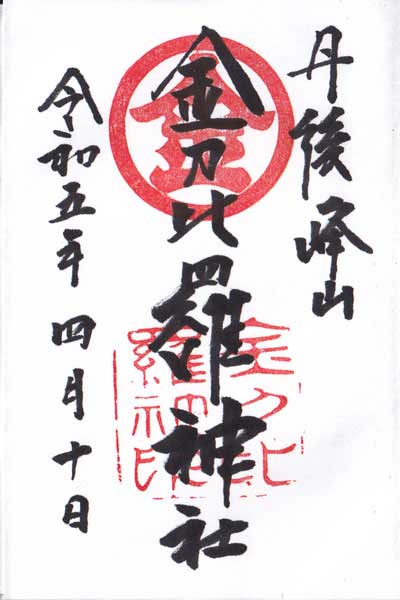 丹後峰山
金刀比羅神社
令和五年 四月十日
金
金刀比
羅神印